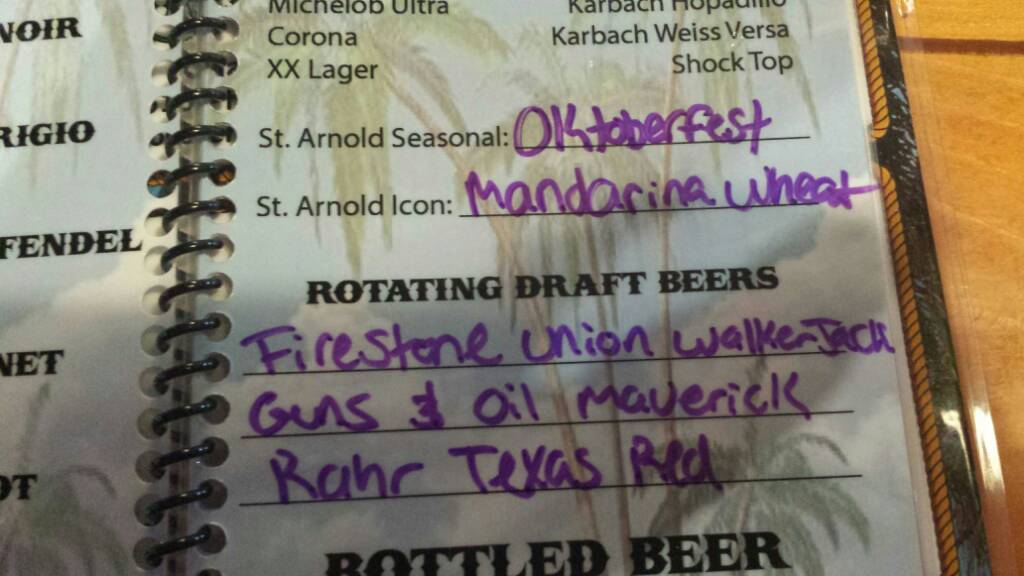 NOIR
RIGIO
FENDEL
NET
OT
Michelob Ultra Karbach Hopadillo
Corona Karbach Weiss Versa
XX Lager Shock Top
St. Arnold Seasonal: Oktoberfest
St. Arnold Icon: Mandarina Wheat
ROTATING DRAFT BEERS
Firestone Union Walker Jack
Guns & Oil Maverick
Rahr Texas Red
BOTTLED BEER